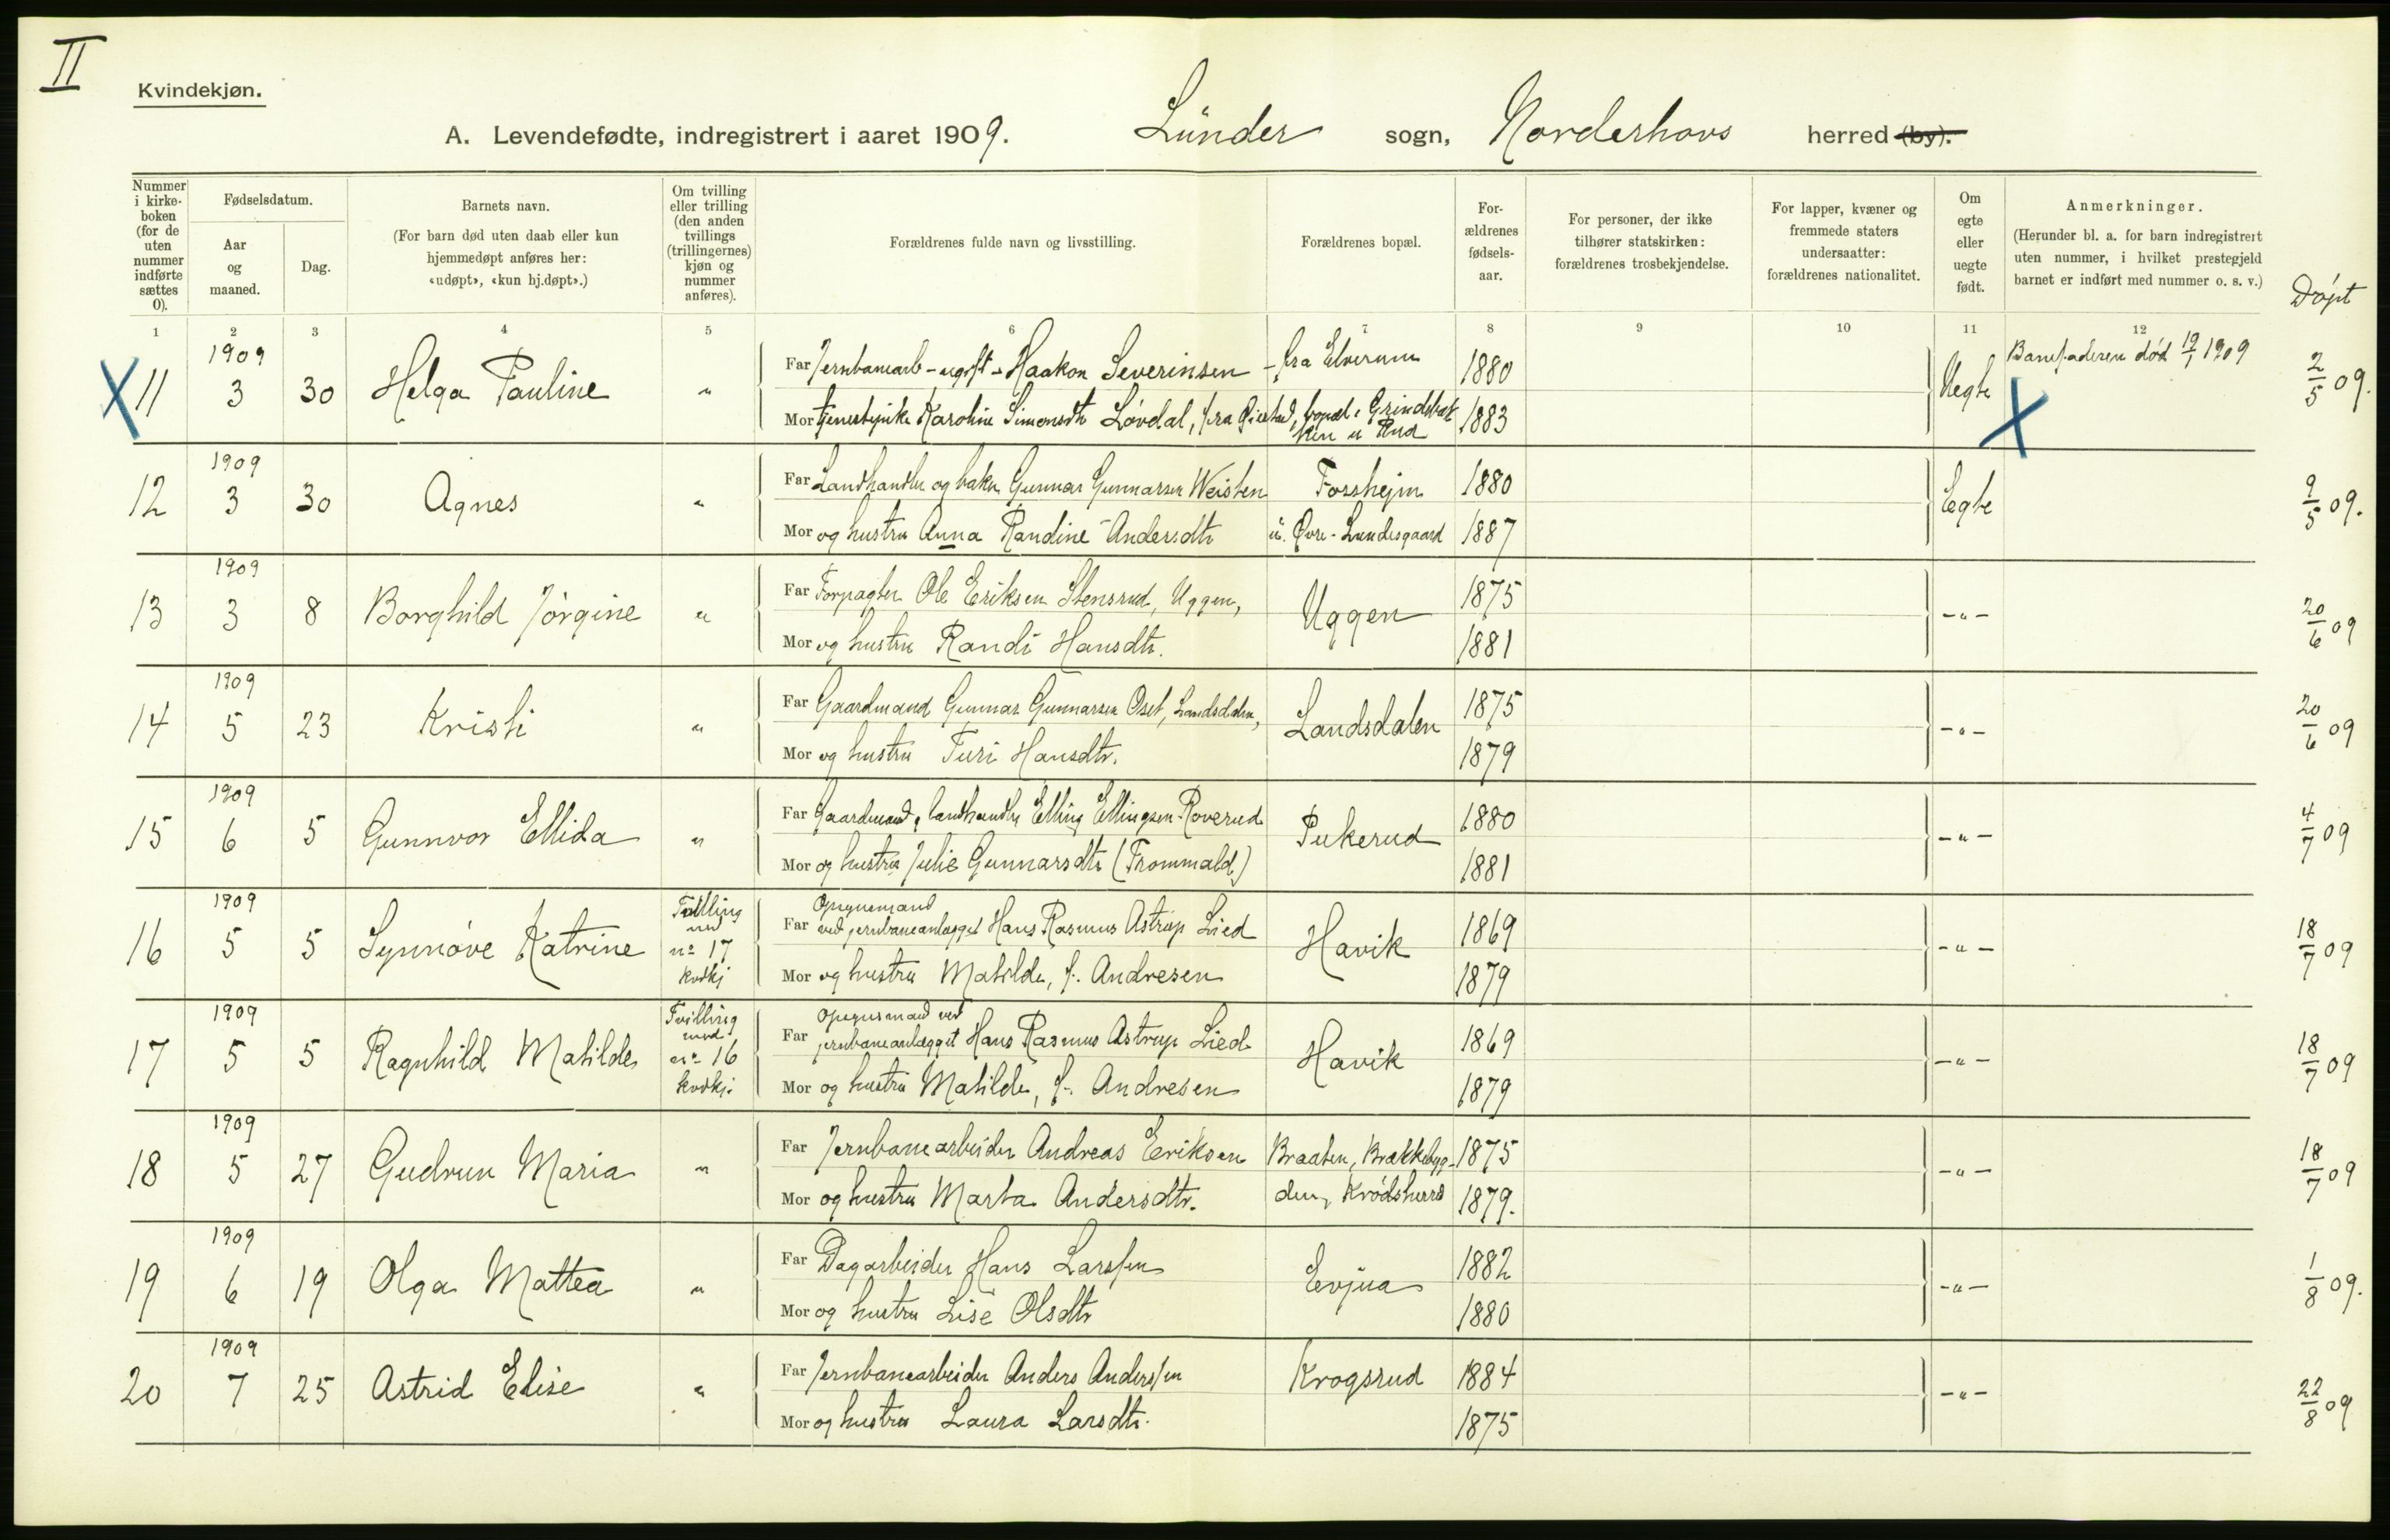 II
Kvindekjøn.
A. Levendefødte, indregistrert i aaret 1909. Lünder sogn, Norderhovs herred (by).
Nummer i kirke-boken (for de uten nummer indførte sættes 0).
Fødselsdatum.
Aar og maaned.
Dag.
Barnets navn.
(For barn død uten daab eller kun hjemmedøpt anføres her: «udøpt», «kun hj.døpt».)
Om tvilling eller trilling (den anden tvillings (trillingernes) kjøn og nummer anføres).
Forældrenes fulde navn og livsstilling.
Forældrenes bopæl.
For-ældrenes fødsels-aar.
For personer, der ikke tilhører statskirken: forældrenes trosbekjendelse.
For lapper, kvæner og fremmede staters undersaatter: forældrenes nationalitet.
Om egte eller uegte født.
Anmerkninger.
(Herunder bl. a. for barn indregistrert uten nummer, i hvilket prestegjeld barnet er indført med nummer o. s. v.)
Döpt
1 2 3 4 5 6 7 8 9 10 11 12
X 11 1909 3 30 Helga Pauline " Far Jernbanearb - ugift - Haakon Severinsen - fra Elverum 1880 Uegte Barnefaderen död 19/1 1909 2/5 09.
Mor tjenestepike Karoline Simonsdtr Lövdal, fra bopæl: Grindsbækken u Rud 1883 X
12 1909 3 30 Agnes " Far Landhandler og baker Gunnar Gunnarsen Weisten Forshejm 1880 Egte 9/5 09.
Mor og hustru Anna Randine Andersdtr u. Øvre-Lundesgaard 1887
13 1909 3 8 Borghild Jörgine " Far Forpagter Ole Eriksen Stensrud, Uggen, Uggen 1875 -"- 20/6 09
Mor og hustru Randi Hansdtr. 1881
14 1909 5 23 Kristi " Far Gaardmand Gunnar Gunnarsen Oset, Landsdalen, Landsdalen 1875 -"- 20/6 09
Mor og hustru Turi Hansdtr. 1879
15 1909 6 5 Gunnvor Ellida " Far Gaardmand, landhandler Elling Ellingsen Roverud Pukerud 1880 -"- 4/7 09
Mor og hustru Julie Gunnarsdtr (Frommald) 1881
16 1909 5 5 Synnöve Katrine Tvilling med no 17 kvdkj Far Opsynsmand ved jernbaneanlægget Hans Rasmus Astrup Lied Havik 1869 -"- 18/7 09
Mor og hustru Matilde, f. Andresen 1879
17 1909 5 5 Ragnhild Matilde Tvilling med no 16 kvdkj. Far Opsynsmand ved jernbaneanlægget Hans Rasmus Astrup Lied Havik 1869 -"- 18/7 09
Mor og hustru Matilde, f. Andresen 1879
18 1909 5 27 Gudrun Maria " Far Jernbanearbeider Andreas Eriksen Braaten, Brækkebyg- 1875 -"- 18/7 09
Mor og hustru Marta Andersdtr. den, Krödsherred 1879.
19 1909 6 19 Olga Mattea " Far Dagarbeider Hans Larssen Evjua 1882 -"- 1/8 09.
Mor og hustru Lise Olsdtr 1880
20 1909 7 25 Astrid Elise " Far Jernbanearbeider Anders Anderssen Krogsrud 1884 -"- 22/8 09
Mor og hustru Laura Larsdtr. 1875